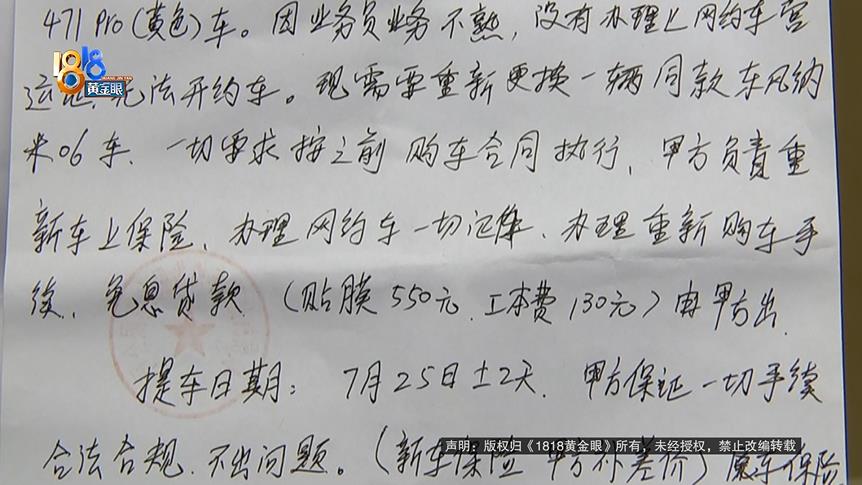 471 Pro(黄色)车。因业务员业务不熟,没有办理上网约车营
运证,无法开约车。现需要重新更换一辆同款东风纳
米06车,一切要求按之前购车合同执行,甲方负责重
新车上保险、办理网约车一切证件、办理重新购车手
续、免息贷款(贴膜550元、工本费130元)由甲方出.
提车日期:7月25日±2天.甲方保证一切手续
合法合规.不出问题。(新车保险 甲方补差价)原车保险
1818
HUANG JIN YAN
黄金眼
声明:版权归《1818黄金眼》所有,未经授权,禁止改编转载